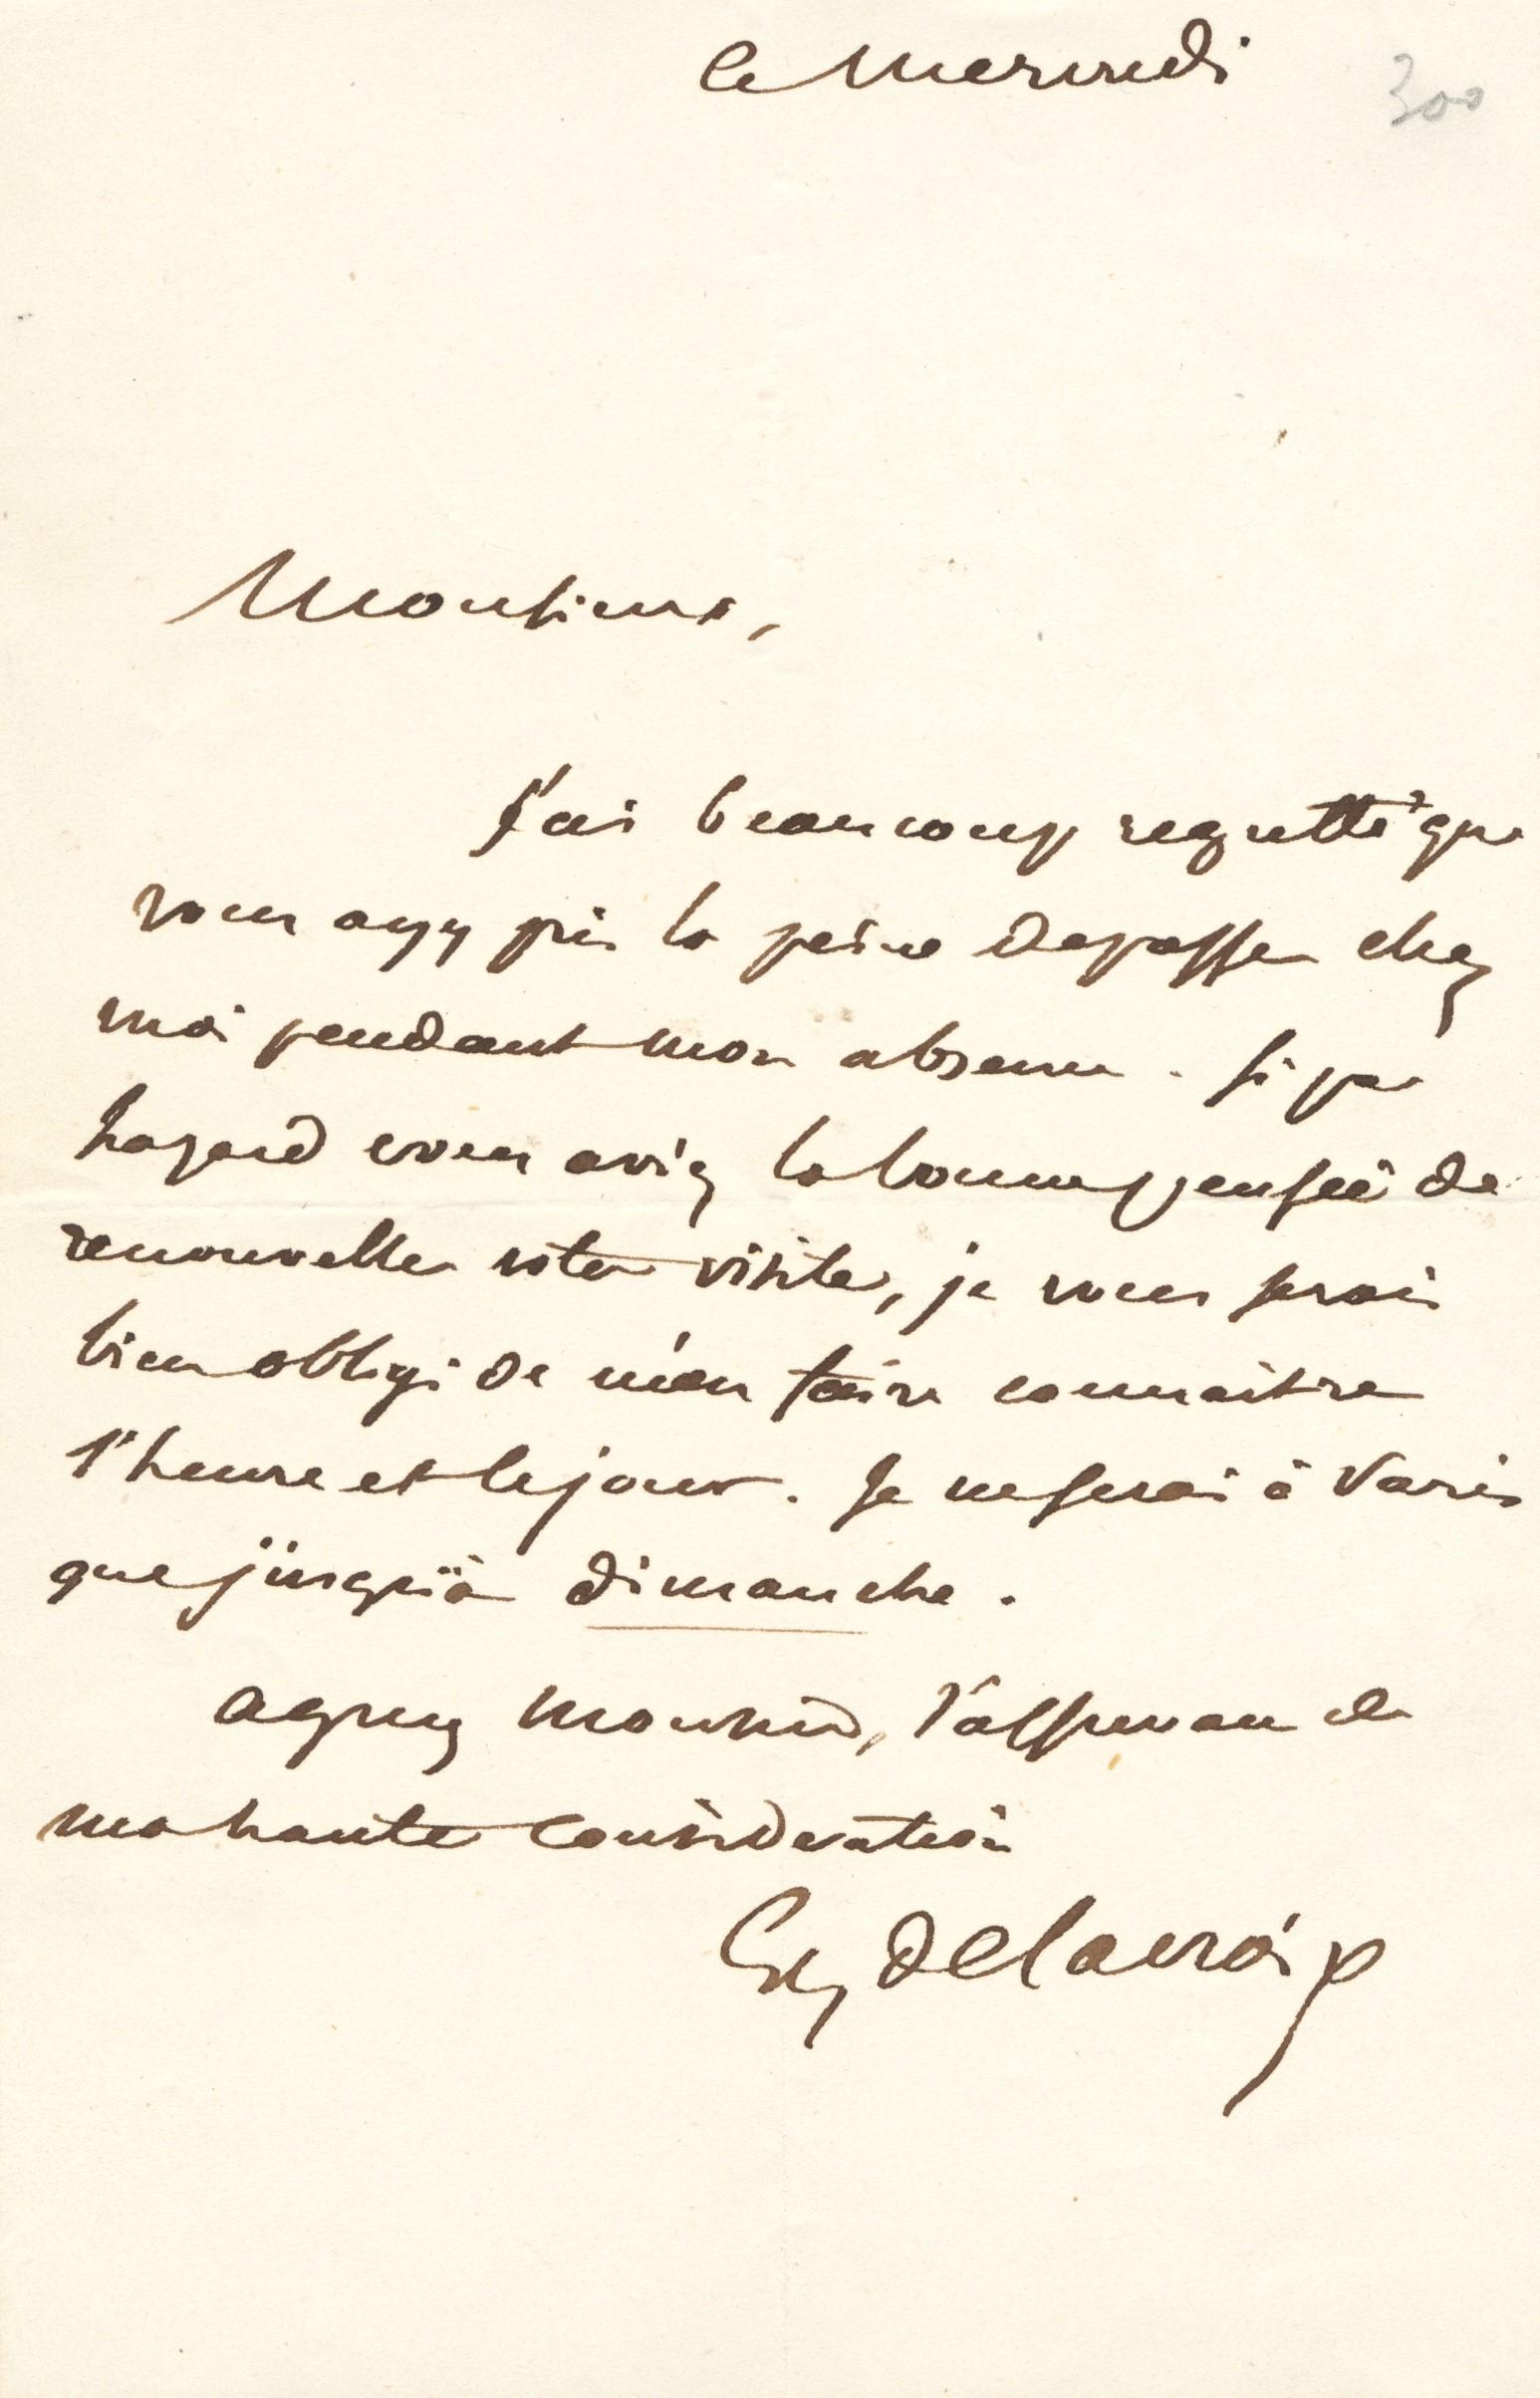 ce Mercredi
300
Monsieur,
J'ai beaucoup regretté que
vous ayez pris la peine de passer chez
moi pendant mon absence. Si par
hazard vous aviez la bonne pensée de
renouveller votre visite, je vous serais
bien obligé de m'en faire connaitre
l'heure et le jour. Je ne serai à Paris
que jusqu'à dimanche.
agreez Monsieur, l'assurance de
ma haute considération
Eug Delacroix